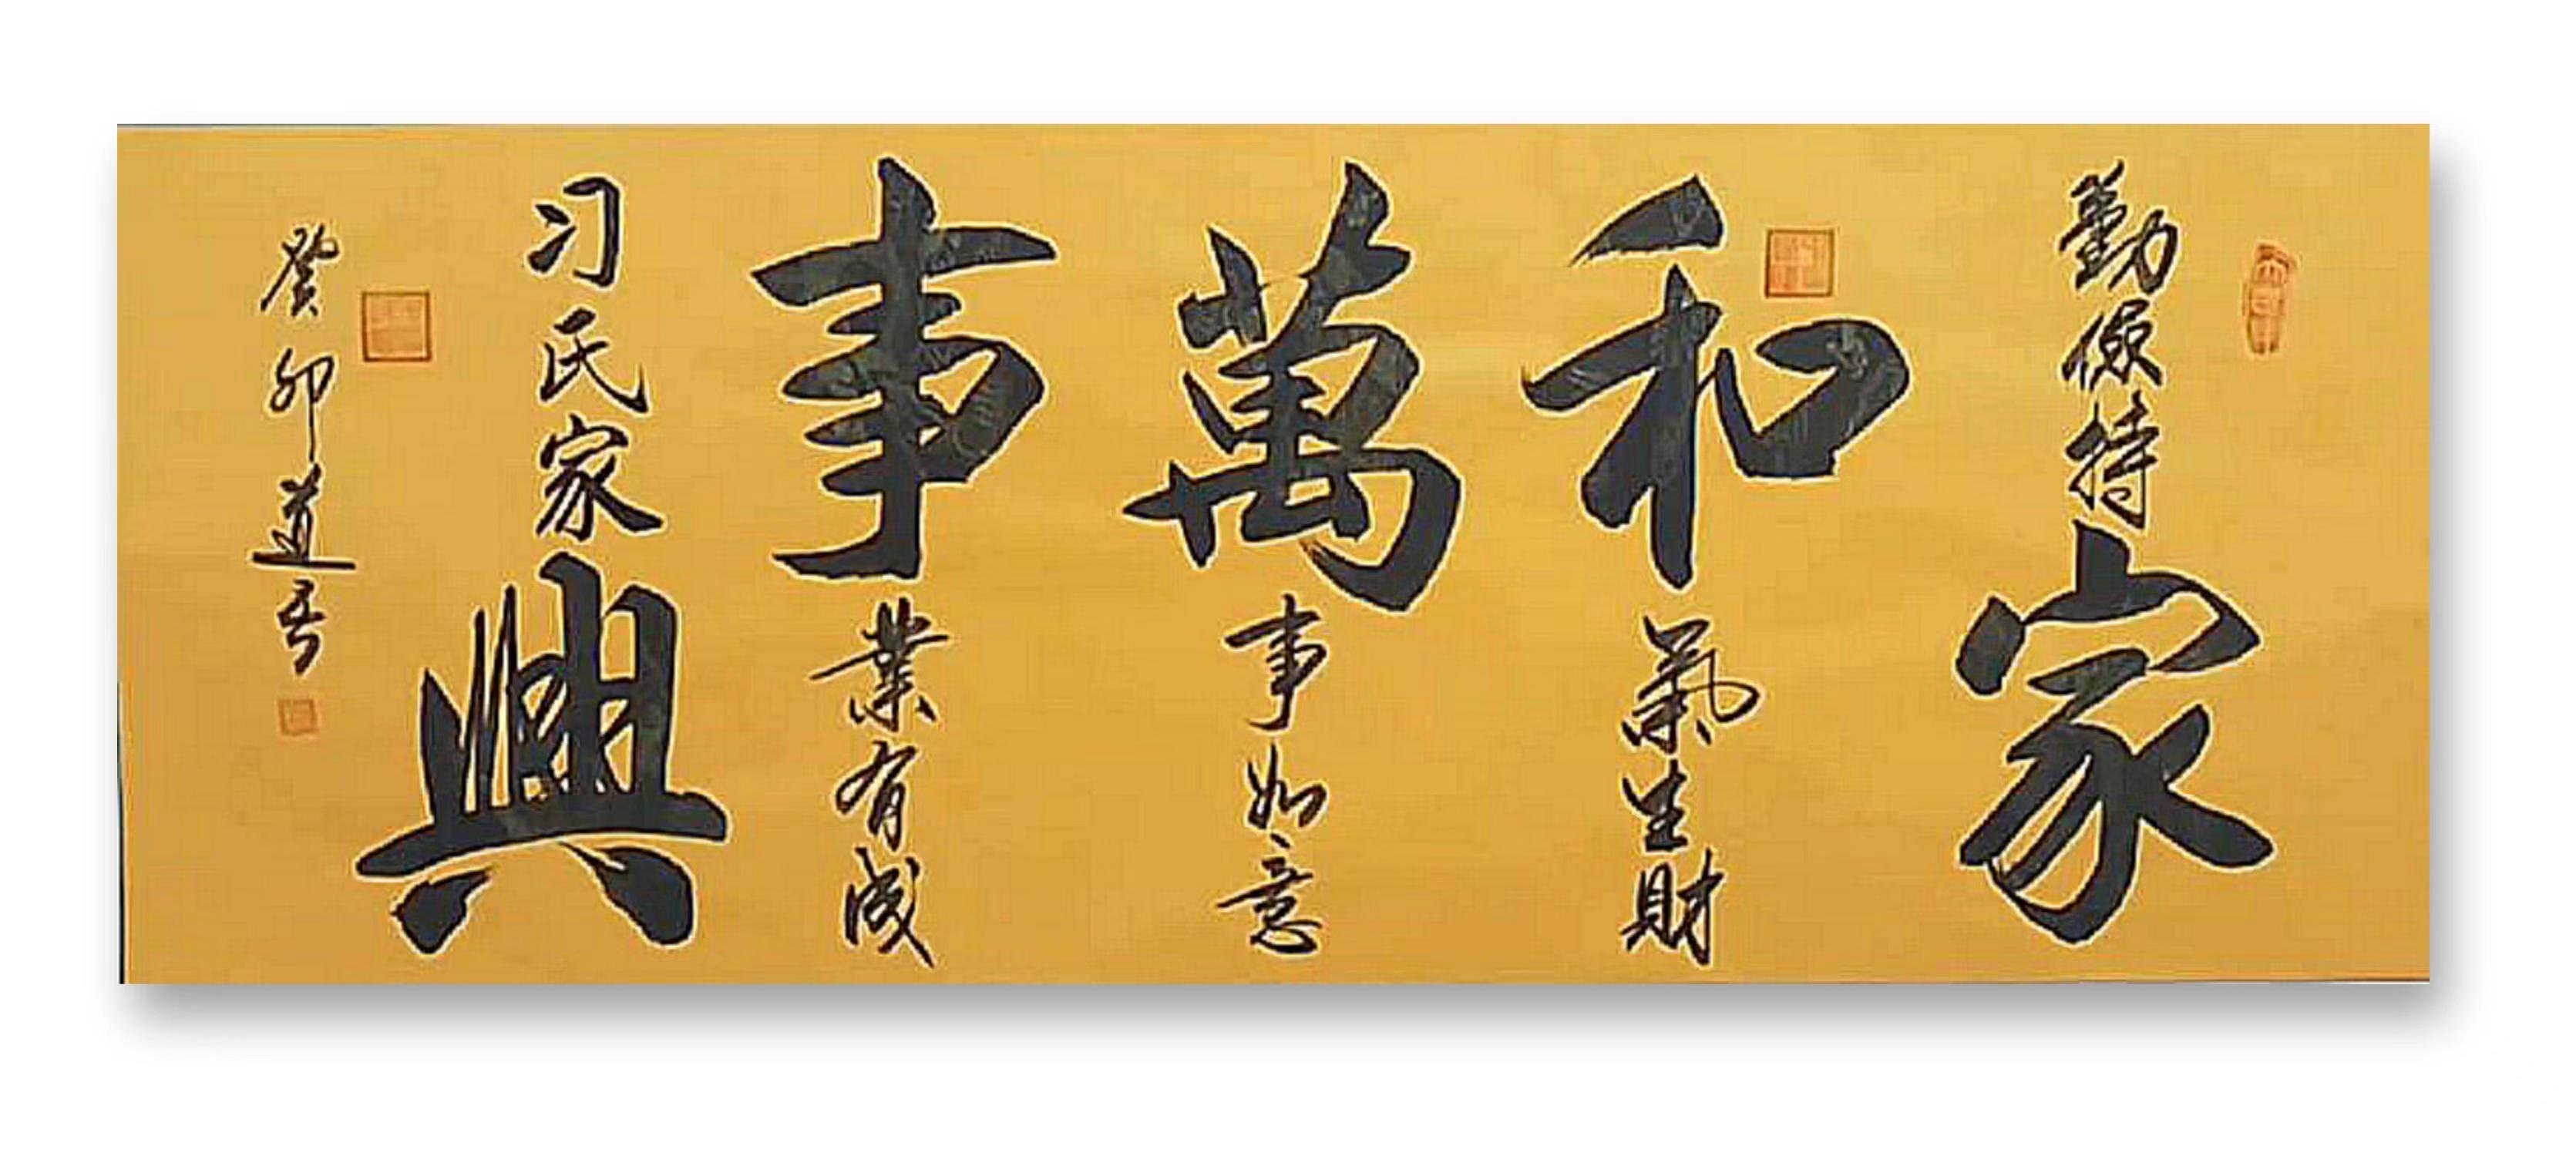 勤儉持家
和氣生財
萬事如意
事業有成
刁氏家興
癸卯道吾